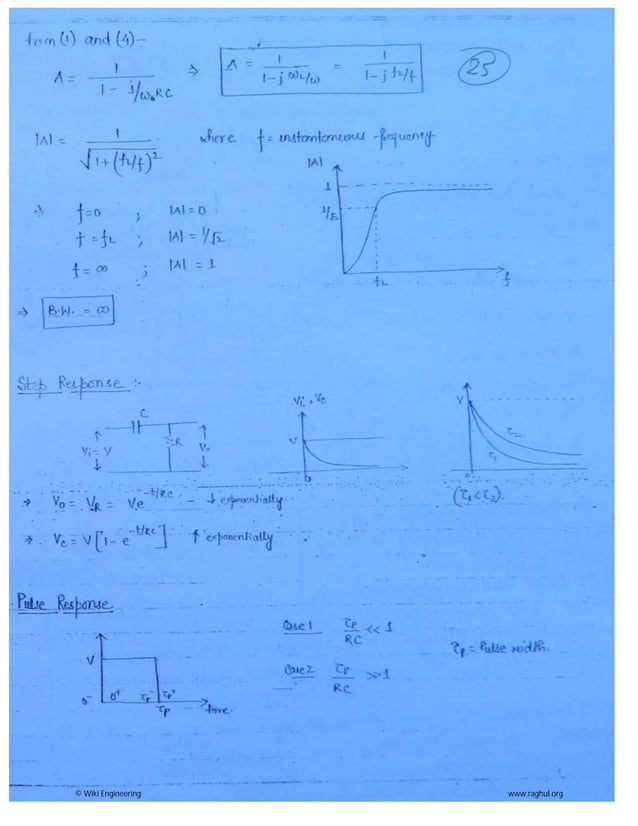 from (1) and (4)—
A = 1 / (1 - j/ω₀RC) ⇒ A = 1 / (1 - j ω₂/ω) = 1 / (1 - j f₂/f)
|A| = 1 / √(1 + (f₂/f)²) where f = instantomeous frequency
|A|
1
1/√2
f₂
f
⇒ f=0 ; |A| = 0
f = f₂ ; |A| = 1/√2
f = ∞ ; |A| = 1
⇒ B.W. = ∞
Step Response :-
C
Vi = V
R
Vo
Vi , Vo
V
0
V
τ₂
τ₁
0
(τ₁<τ₂)
⇒ Vo = VR = Ve^(-t/RC) - ↓ exponentially
⇒ Vc = V[1 - e^(-t/RC)] ↑ exponentially
Pulse Response
V
0⁻ 0⁺ τp⁻ τp⁺
τp
time
Case 1 τp/RC << 1
Case 2 τp/RC >> 1
τp = Pulse width.
© Wiki Engineering
www.raghul.org